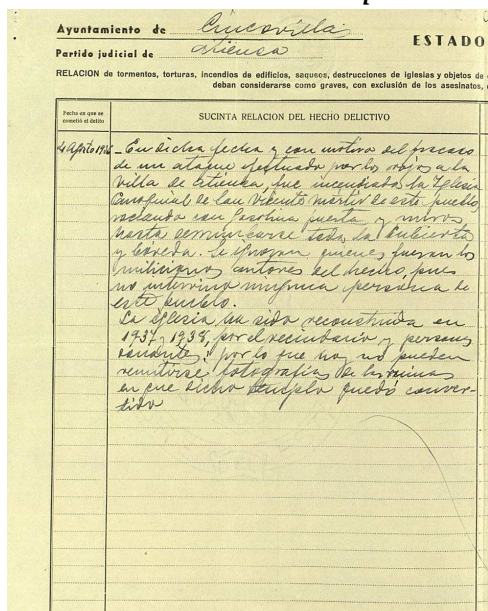 Ayuntamiento de Cincovillas
ESTADO
Partido judicial de Atienza
RELACION de tormentos, torturas, incendios de edificios, saqueos, destrucciones de iglesias y objetos de
deban considerarse como graves, con exclusión de los asesinatos,
Fecha en que se
cometió el delito
SUCINTA RELACION DEL HECHO DELICTIVO
4 Agosto 1936 - En dicha fecha y con motivo del fracaso
de un ataque efectuado por los rojos a la
villa de Atienza, fue incendiada la Yglesia
Parroquial de San Vicente mártir de este pueblo,
rociando con gasolina puerta y muros
hasta derrumbarse toda la cubierta
y bóveda. Se ignoran quienes fueran los
milicianos autores del hecho, pues
no intervino ninguna persona de
este pueblo.
La Yglesia ha sido reconstruida en
1937 y 1938, por el vecindario y personas
donantes, por lo que hoy no pueden
remitirse fotografías de las ruinas
en que dicho templo quedó conver-
tido